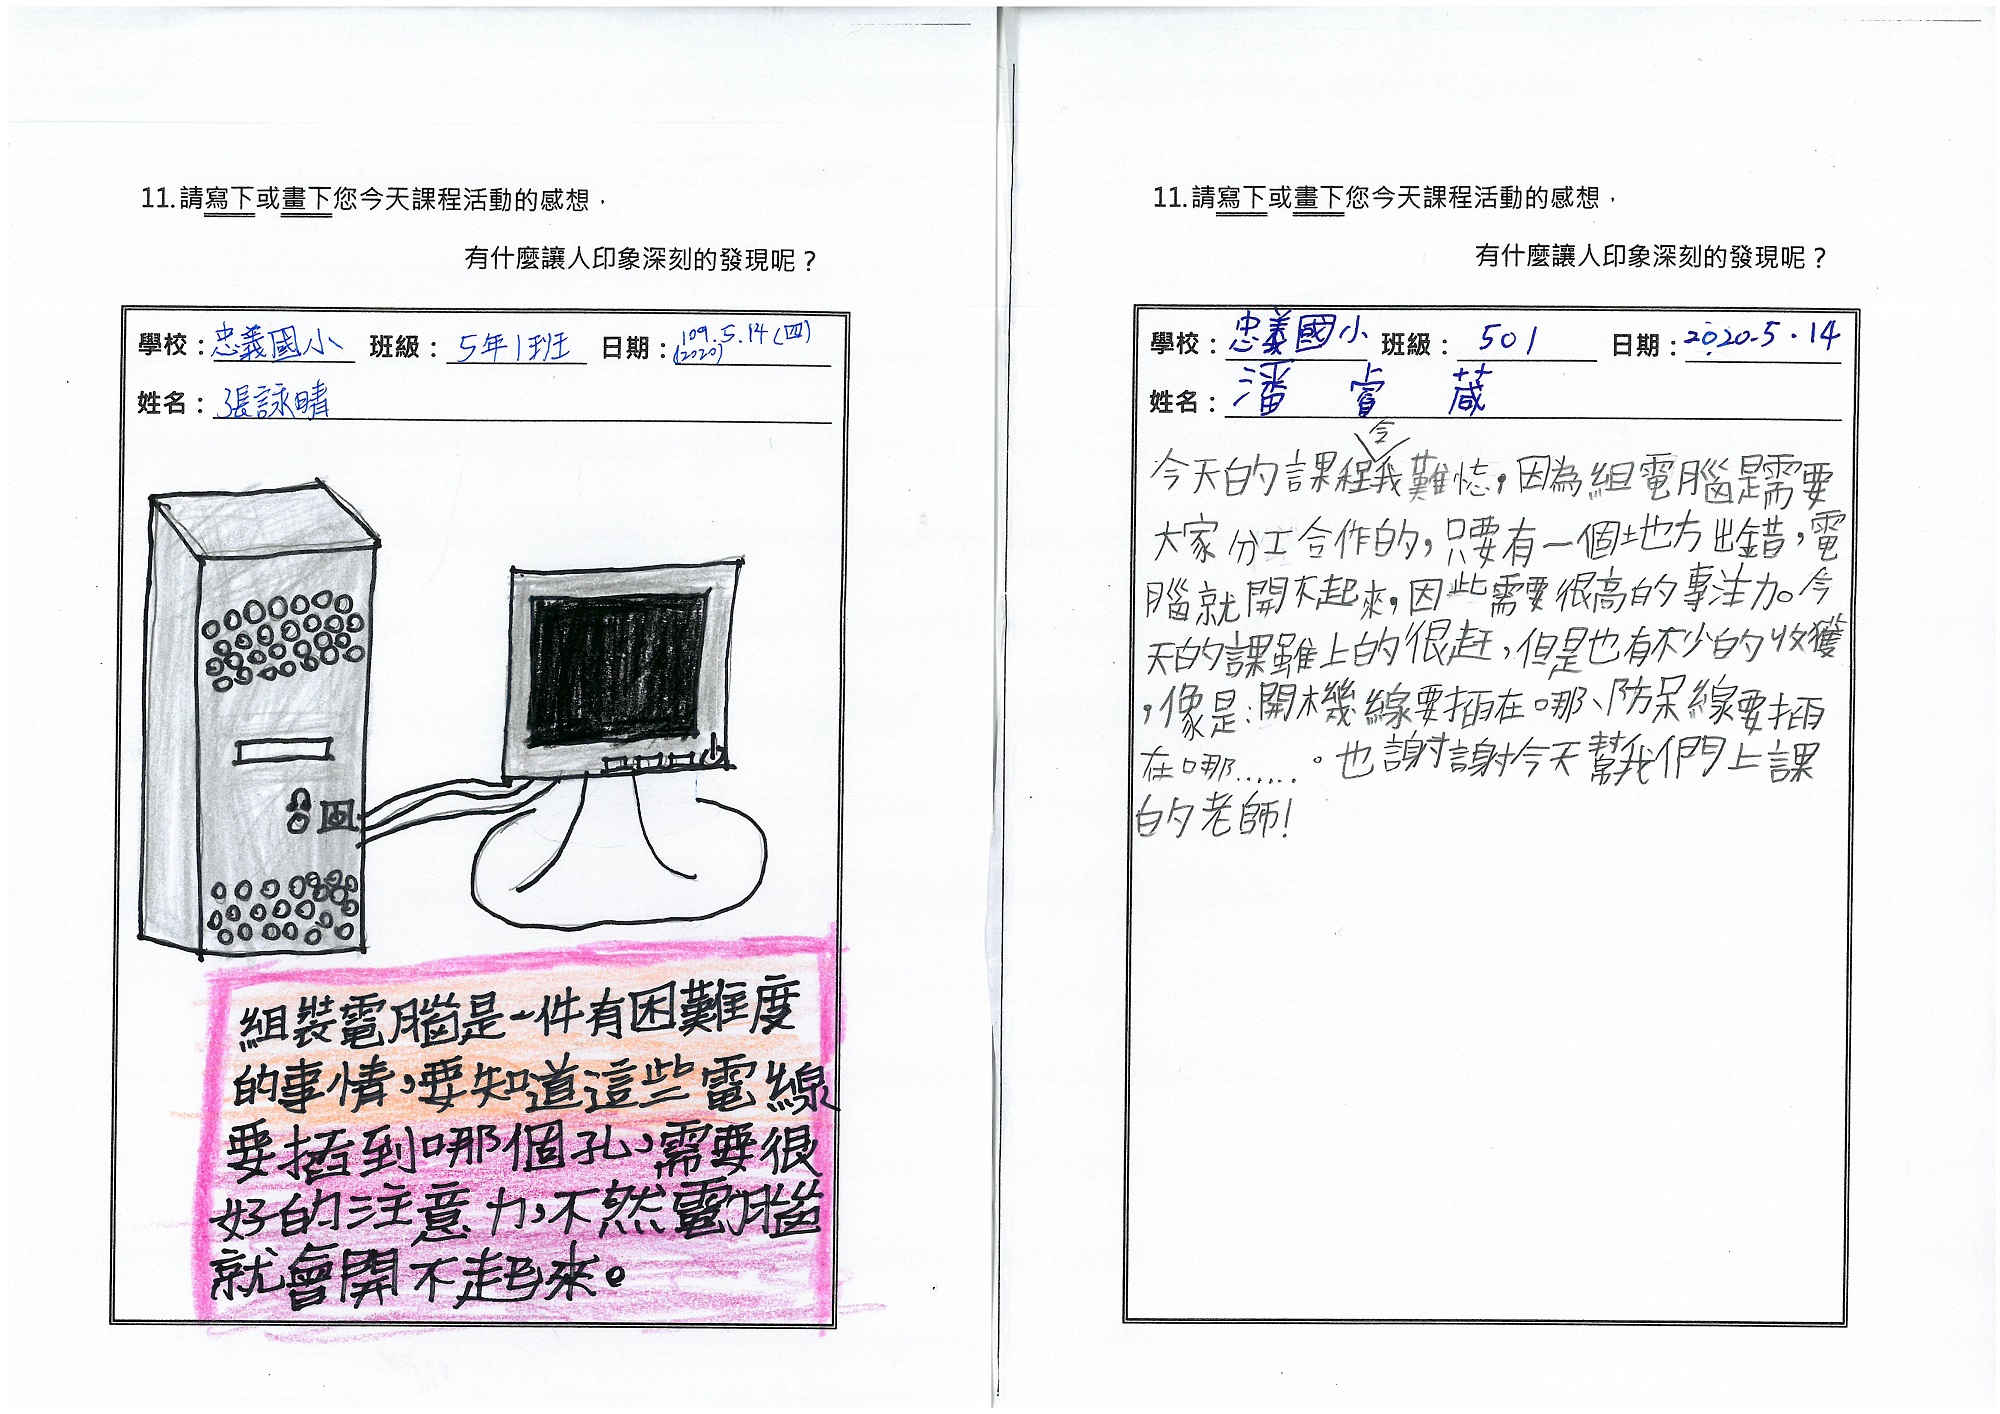 11.請寫下或畫下您今天課程活動的感想，
有什麼讓人印象深刻的發現呢？
學校：忠義國小 班級：5年1班 日期：109.5.14(四)
(2020)
姓名：張詠晴
組裝電腦是一件有困難度
的事情，要知道這些電線
要插到哪個孔，需要很
好的注意力，不然電腦
就會開不起來。
11.請寫下或畫下您今天課程活動的感想，
有什麼讓人印象深刻的發現呢？
學校：忠義國小 班級：501 日期：2020.5.14
姓名：潘 葳
今天的課程令我難忘，因為組電腦是需要
大家分工合作的，只要有一個地方出錯，電
腦就開不起來，因此需要很高的專注力。今
天的課雖上的很趕，但是也有不少的收獲
，像是：開機線要插在哪、防呆線要插
在哪……。也謝謝今天幫我們上課
的老師！